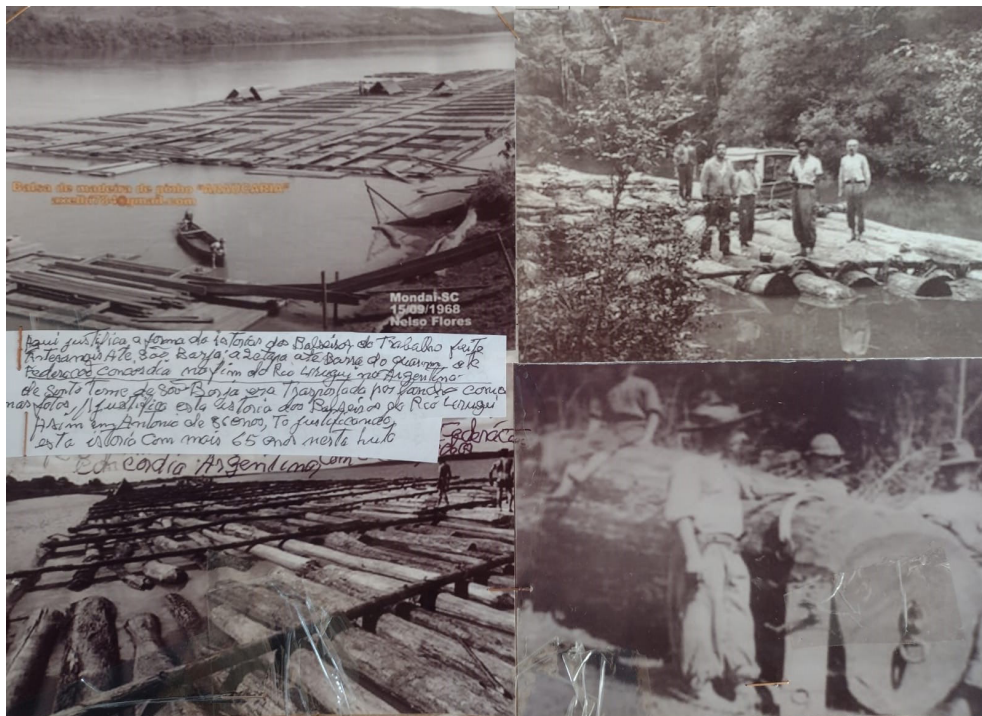 Balsa de madeira de pinho "ARAUCARIA"
axelbi784@gmail.com
Mondaí-SC
15/09/1968
Nelso Flores
Aqui justifica a forma da istorias dos Balseiros do Trabalho feito
Ate São Borja a Barra do quarai, ate
Federação concordia no fim do Rio Urugui na Argentina
de Santo Tome de São Borja era Trasportada por
nas fotos justifica esta istoria dos Balseiros do Rio Urugui
Assim eu Antonio de 86 anos, To justificando
esta istoria com mais 65 anos nesta luta
Federácão
Concordia Argentina com